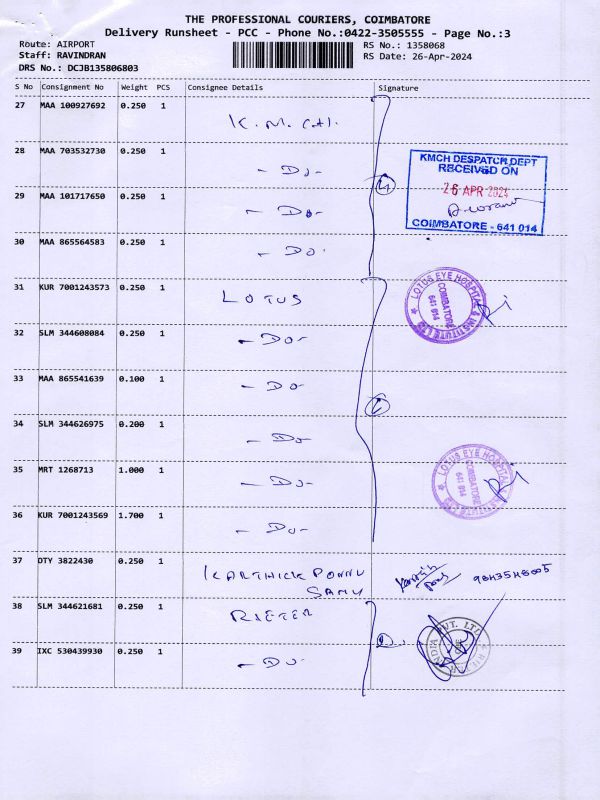 THE PROFESSIONAL COURIERS, COIMBATORE
Delivery Runsheet - PCC - Phone No.:0422-3505555 - Page No.:3
Route: AIRPORT
RS No.: 1358068
Staff: RAVINDRAN
RS Date: 26-Apr-2024
DRS No.: DCJB135806803
S No Consignment No Weight PCS Consignee Details Signature
27 MAA 100927692 0.250 1 K.M.C.H.
28 MAA 703532730 0.250 1 - Do -
29 MAA 101717650 0.250 1 - Do -
30 MAA 865564583 0.250 1 - Do -
KMCH DESPATCH DEPT
RECEIVED ON
26 APR 2024
COIMBATORE - 641 014
31 KUR 7001243573 0.250 1 LOTUS
LOTUS EYE HOSPITAL & INSTITUTE LTD
COIMBATORE
641 014
32 SLM 344608084 0.250 1 - Do -
33 MAA 865541639 0.100 1 - Do -
34 SLM 344626975 0.200 1 - Do -
35 MRT 1268713 1.000 1 - Do -
LOTUS EYE HOSPITAL & INSTITUTE LTD
COIMBATORE
641 014
36 KUR 7001243569 1.700 1 - Do -
37 DTY 3822430 0.250 1 KARTHICK PONNU
SAMY
38 SLM 344621681 0.250 1 RIETER
39 IXC 530439930 0.250 1 - Do -
INDIA PVT. LTD